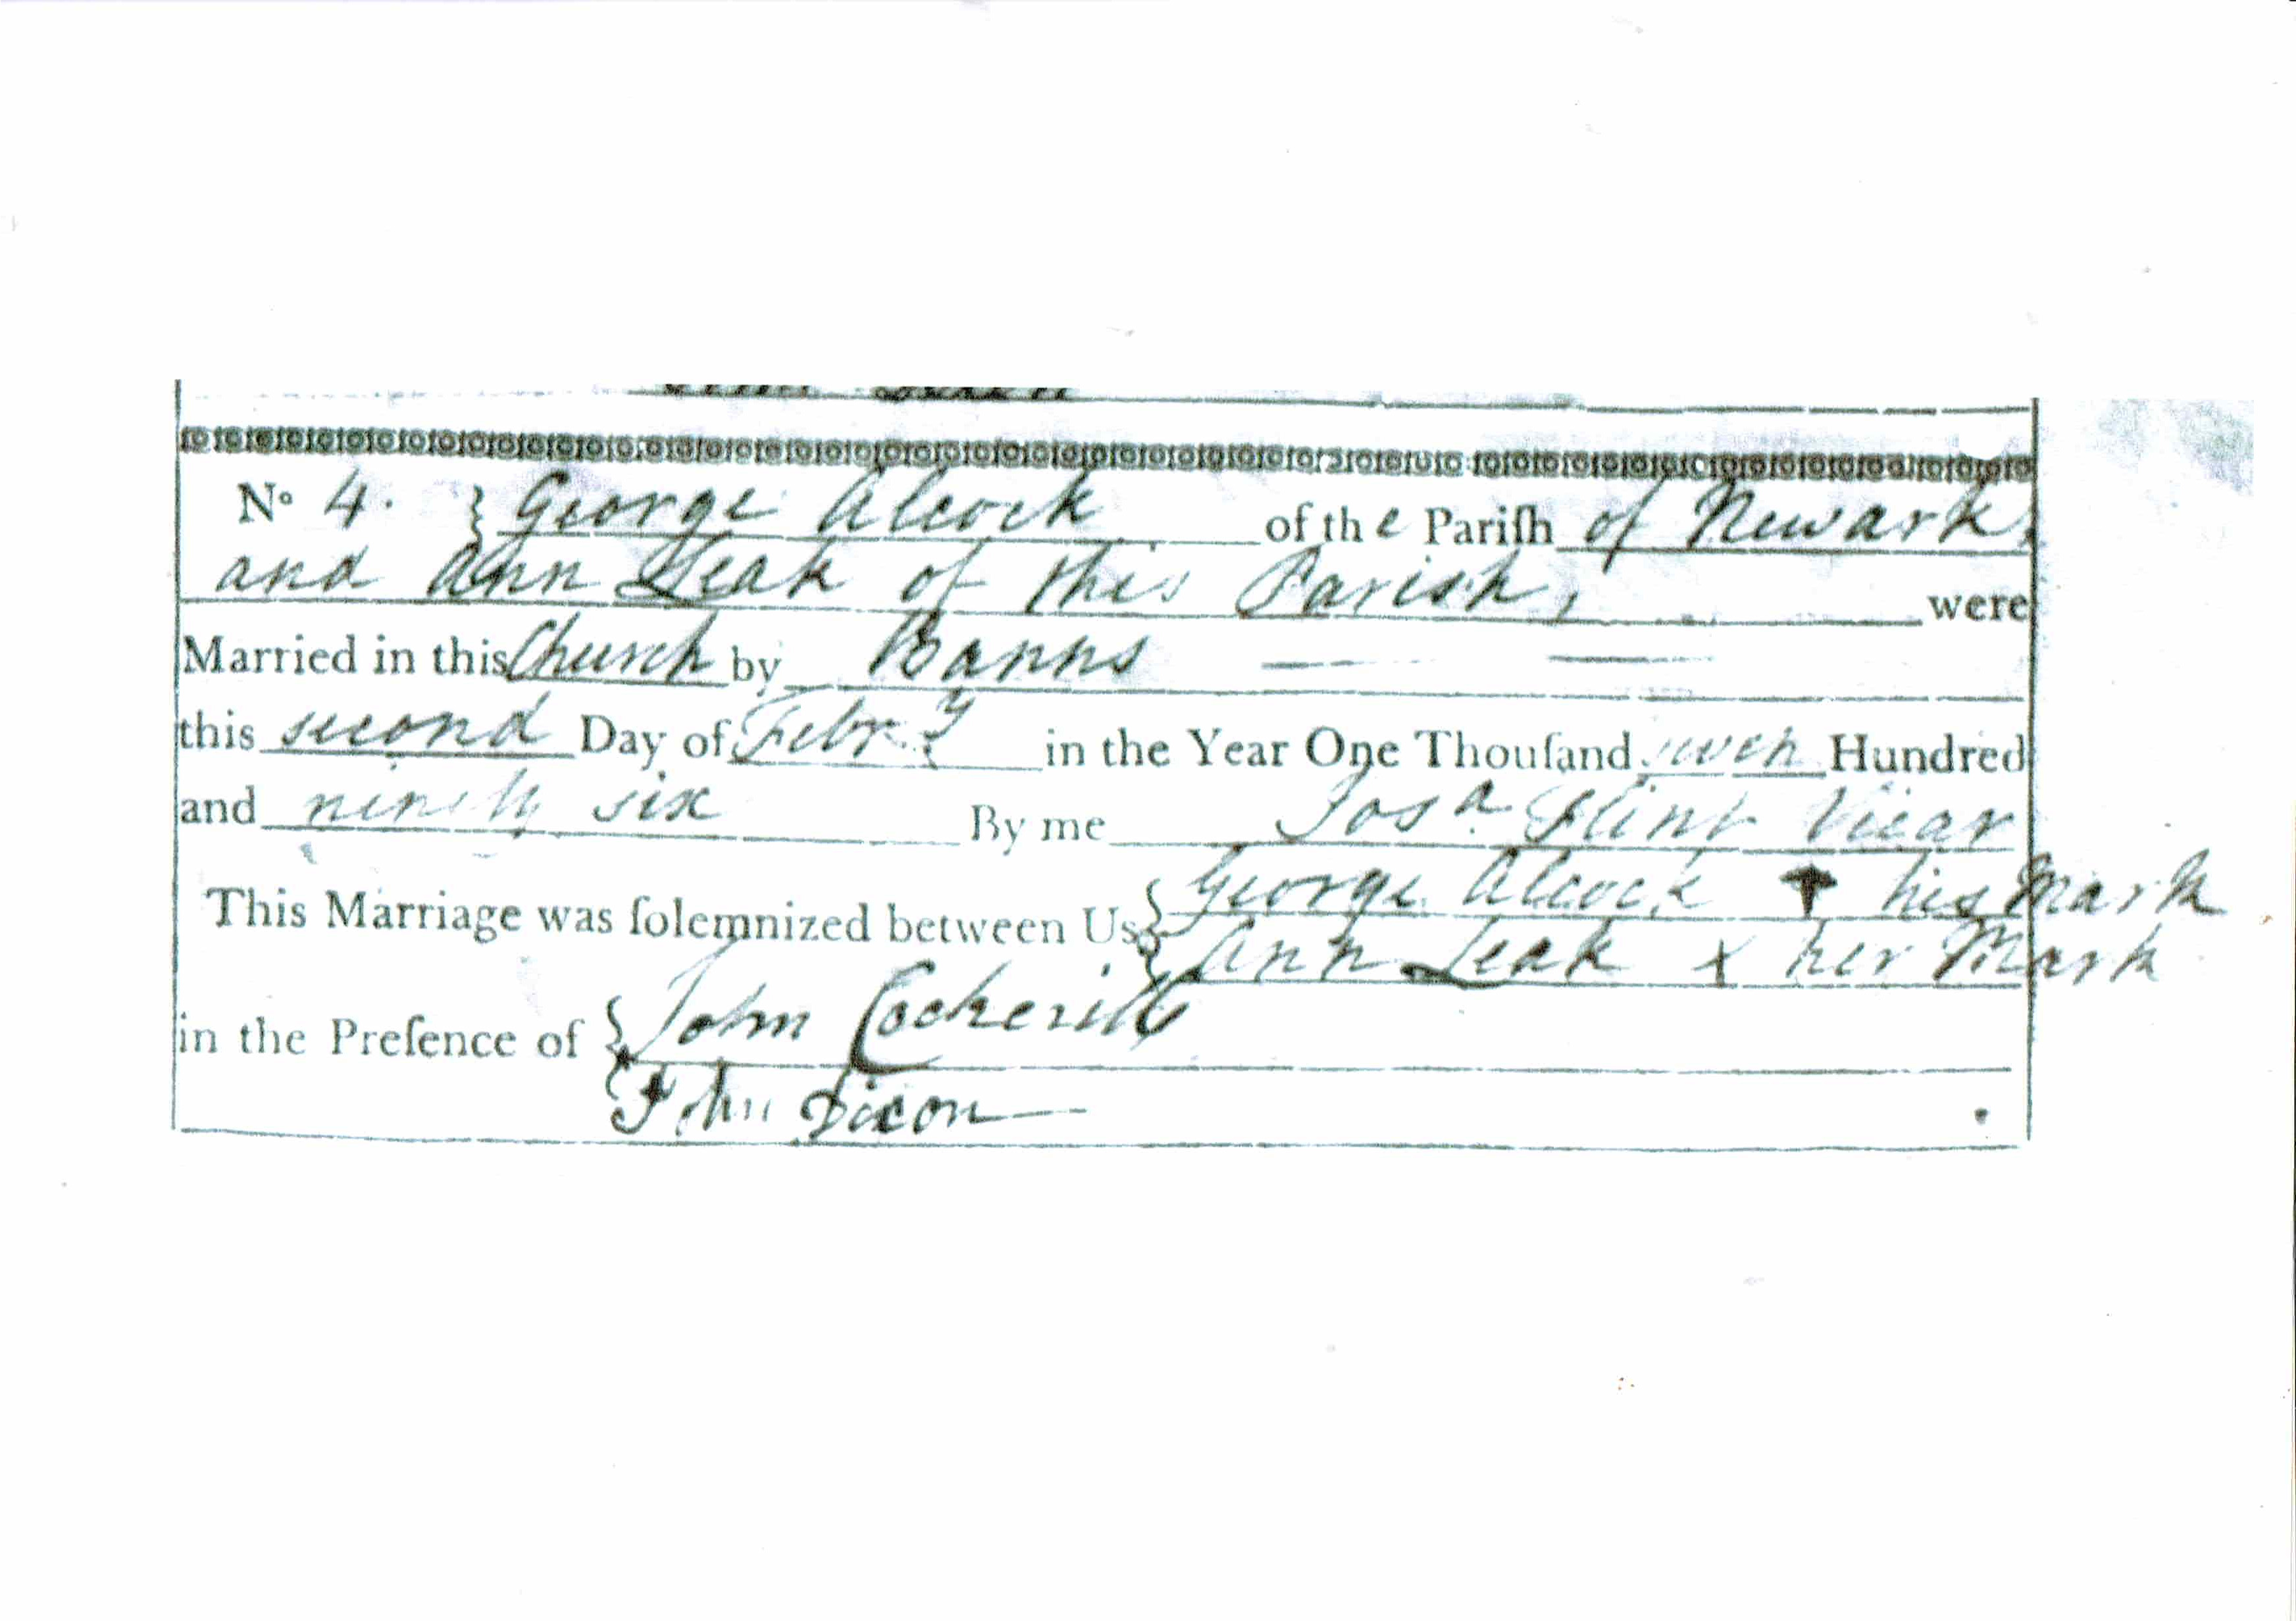 No 4. } George Alcock of the Pariſh of Newark,
and Ann Leak of this Parish, were
Married in this Church by Banns
this second Day of Febry in the Year One Thouſand seven Hundred
and ninety six By me Josa Flint Vicar
This Marriage was ſolemnized between Us { George Alcock † his Mark
Ann Leak x her Mark
in the Preſence of { John Cockerill
John Dixon